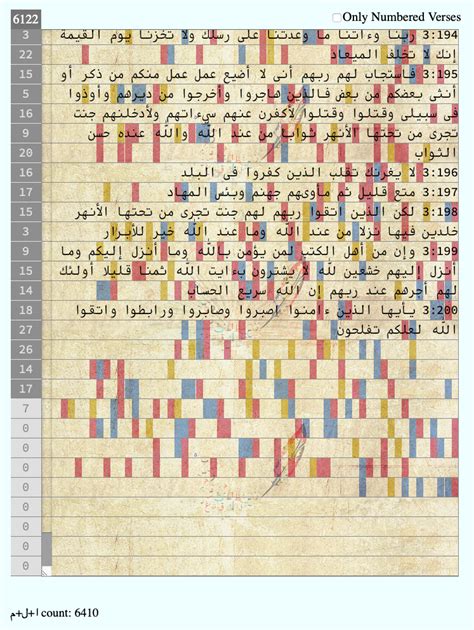 6122
Only Numbered Verses
3
3:194 ربنا وءاتنا ما وعدتنا على رسلك ولا تخزنا يوم القيمة
22
إنك لا تخلف الميعاد
15
3:195 فاستجاب لهم ربهم أنى لا أضيع عمل عمل منكم من ذكر أو
5
أنثى بعضكم من بعض فالذين هاجروا وأخرجوا من ديرهم وأوذوا
16
فى سبيلى وقتلوا وقتلوا لأكفرن عنهم سيءاتهم ولأدخلنهم جنت
9
تجرى من تحتها الأنهر ثوابا من عند الله والله عنده حسن
20
الثواب
16
3:196 لا يغرنك تقلب الذين كفروا فى البلد
17
3:197 متع قليل ثم مأوىهم جهنم وبئس المهاد
15
3:198 لكن الذين اتقوا ربهم لهم جنت تجرى من تحتها الأنهر
13
خلدين فيها نزلا من عند الله وما عند الله خير للأبرار
9
3:199 وإن من أهل الكتب لمن يؤمن بالله وما أنزل إليكم وما
15
أنزل إليهم خشعين لله لا يشترون بءايت الله ثمنا قليلا أولئك
14
لهم أجرهم عند ربهم إن الله سريع الحساب
18
3:200 يأيها الذين ءامنوا اصبروا وصابروا ورابطوا واتقوا
27
الله لعلكم تفلحون
26
14
17
7
0
0
0
0
0
0
0
0
ا+ل+م count: 6410